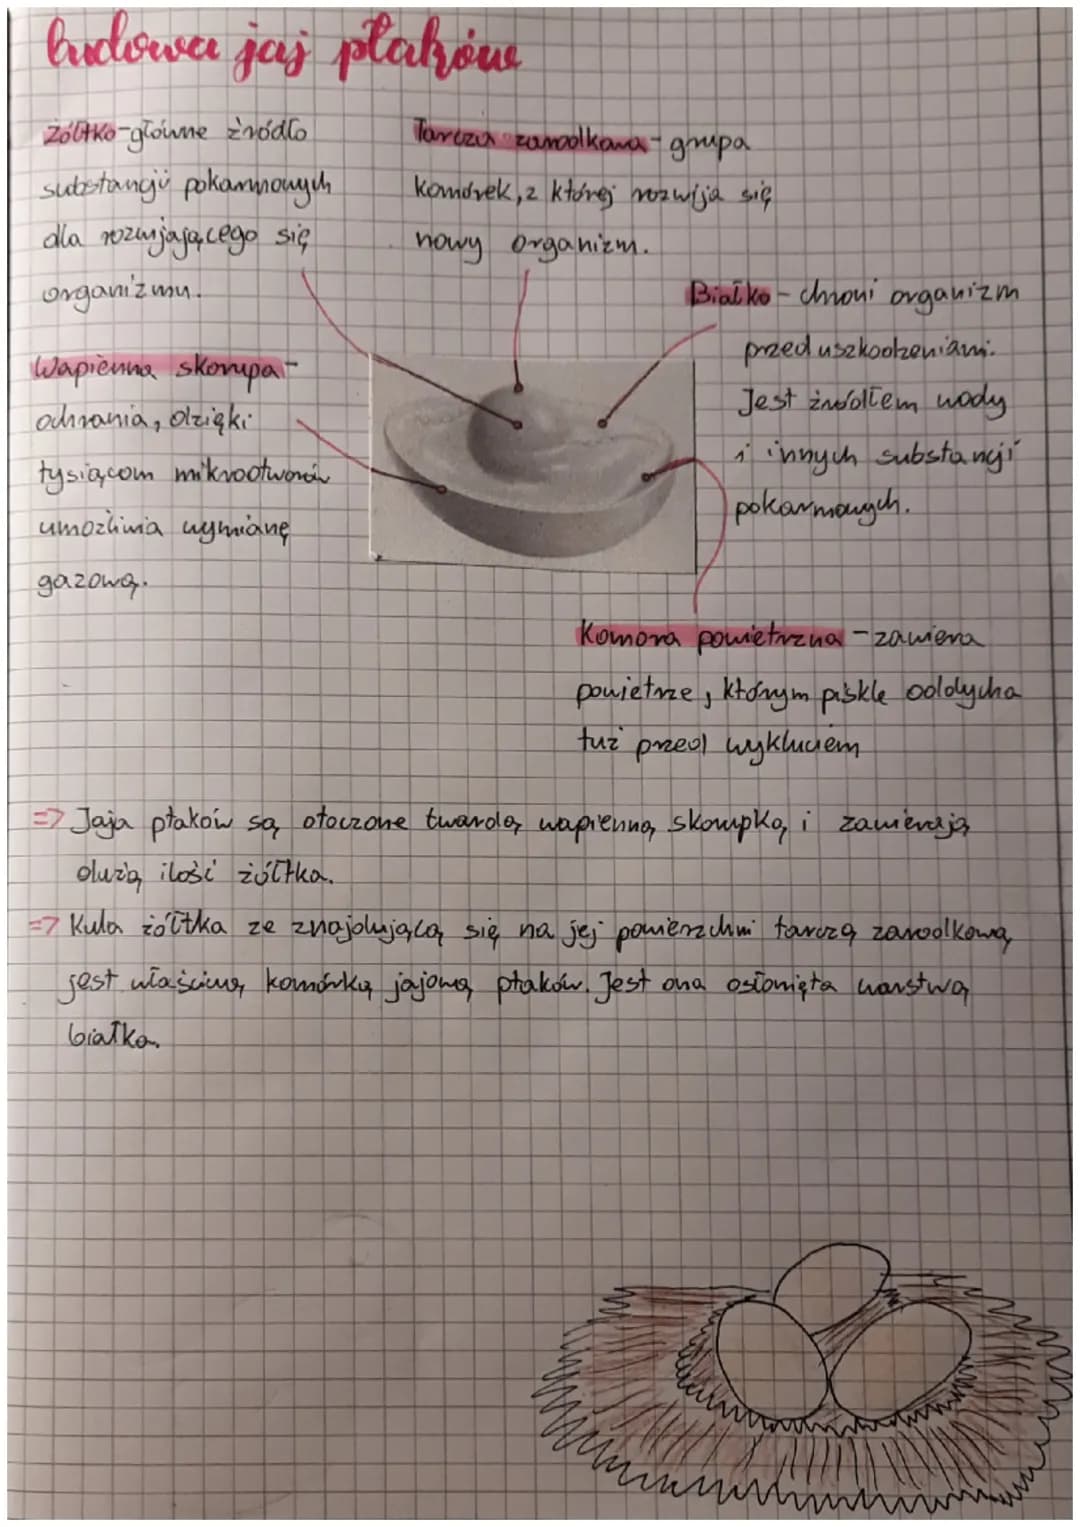 budowa jaj ptaków
Żółtko - główne źródło
substancji pokarmowych
dla rozwijającego się
organizmu.
Tarcza zarodkowa - grupa
komórek, z której rozwija się
nowy organizm.
Białko - chroni organizm
przed uszkodzeniami.
Jest źródłem wody
i innych substancji
pokarmowych.
Wapienna skorupa -
ochrania, dzięki
tysiącom mikrootworów
umożliwia wymianę
gazową.
Komora powietrzna - zawiera
powietrze, którym pisklę oddycha
tuż przed wykluciem
=> Jaja ptaków są otoczone twardą, wapienną skorupką i zawierają
dużą ilość żółtka.
=> Kula żółtka ze znajdującą się na jej powierzchni tarczą zarodkową
jest właściwą komórką jajową ptaków. Jest ona osłonięta warstwą
białka.